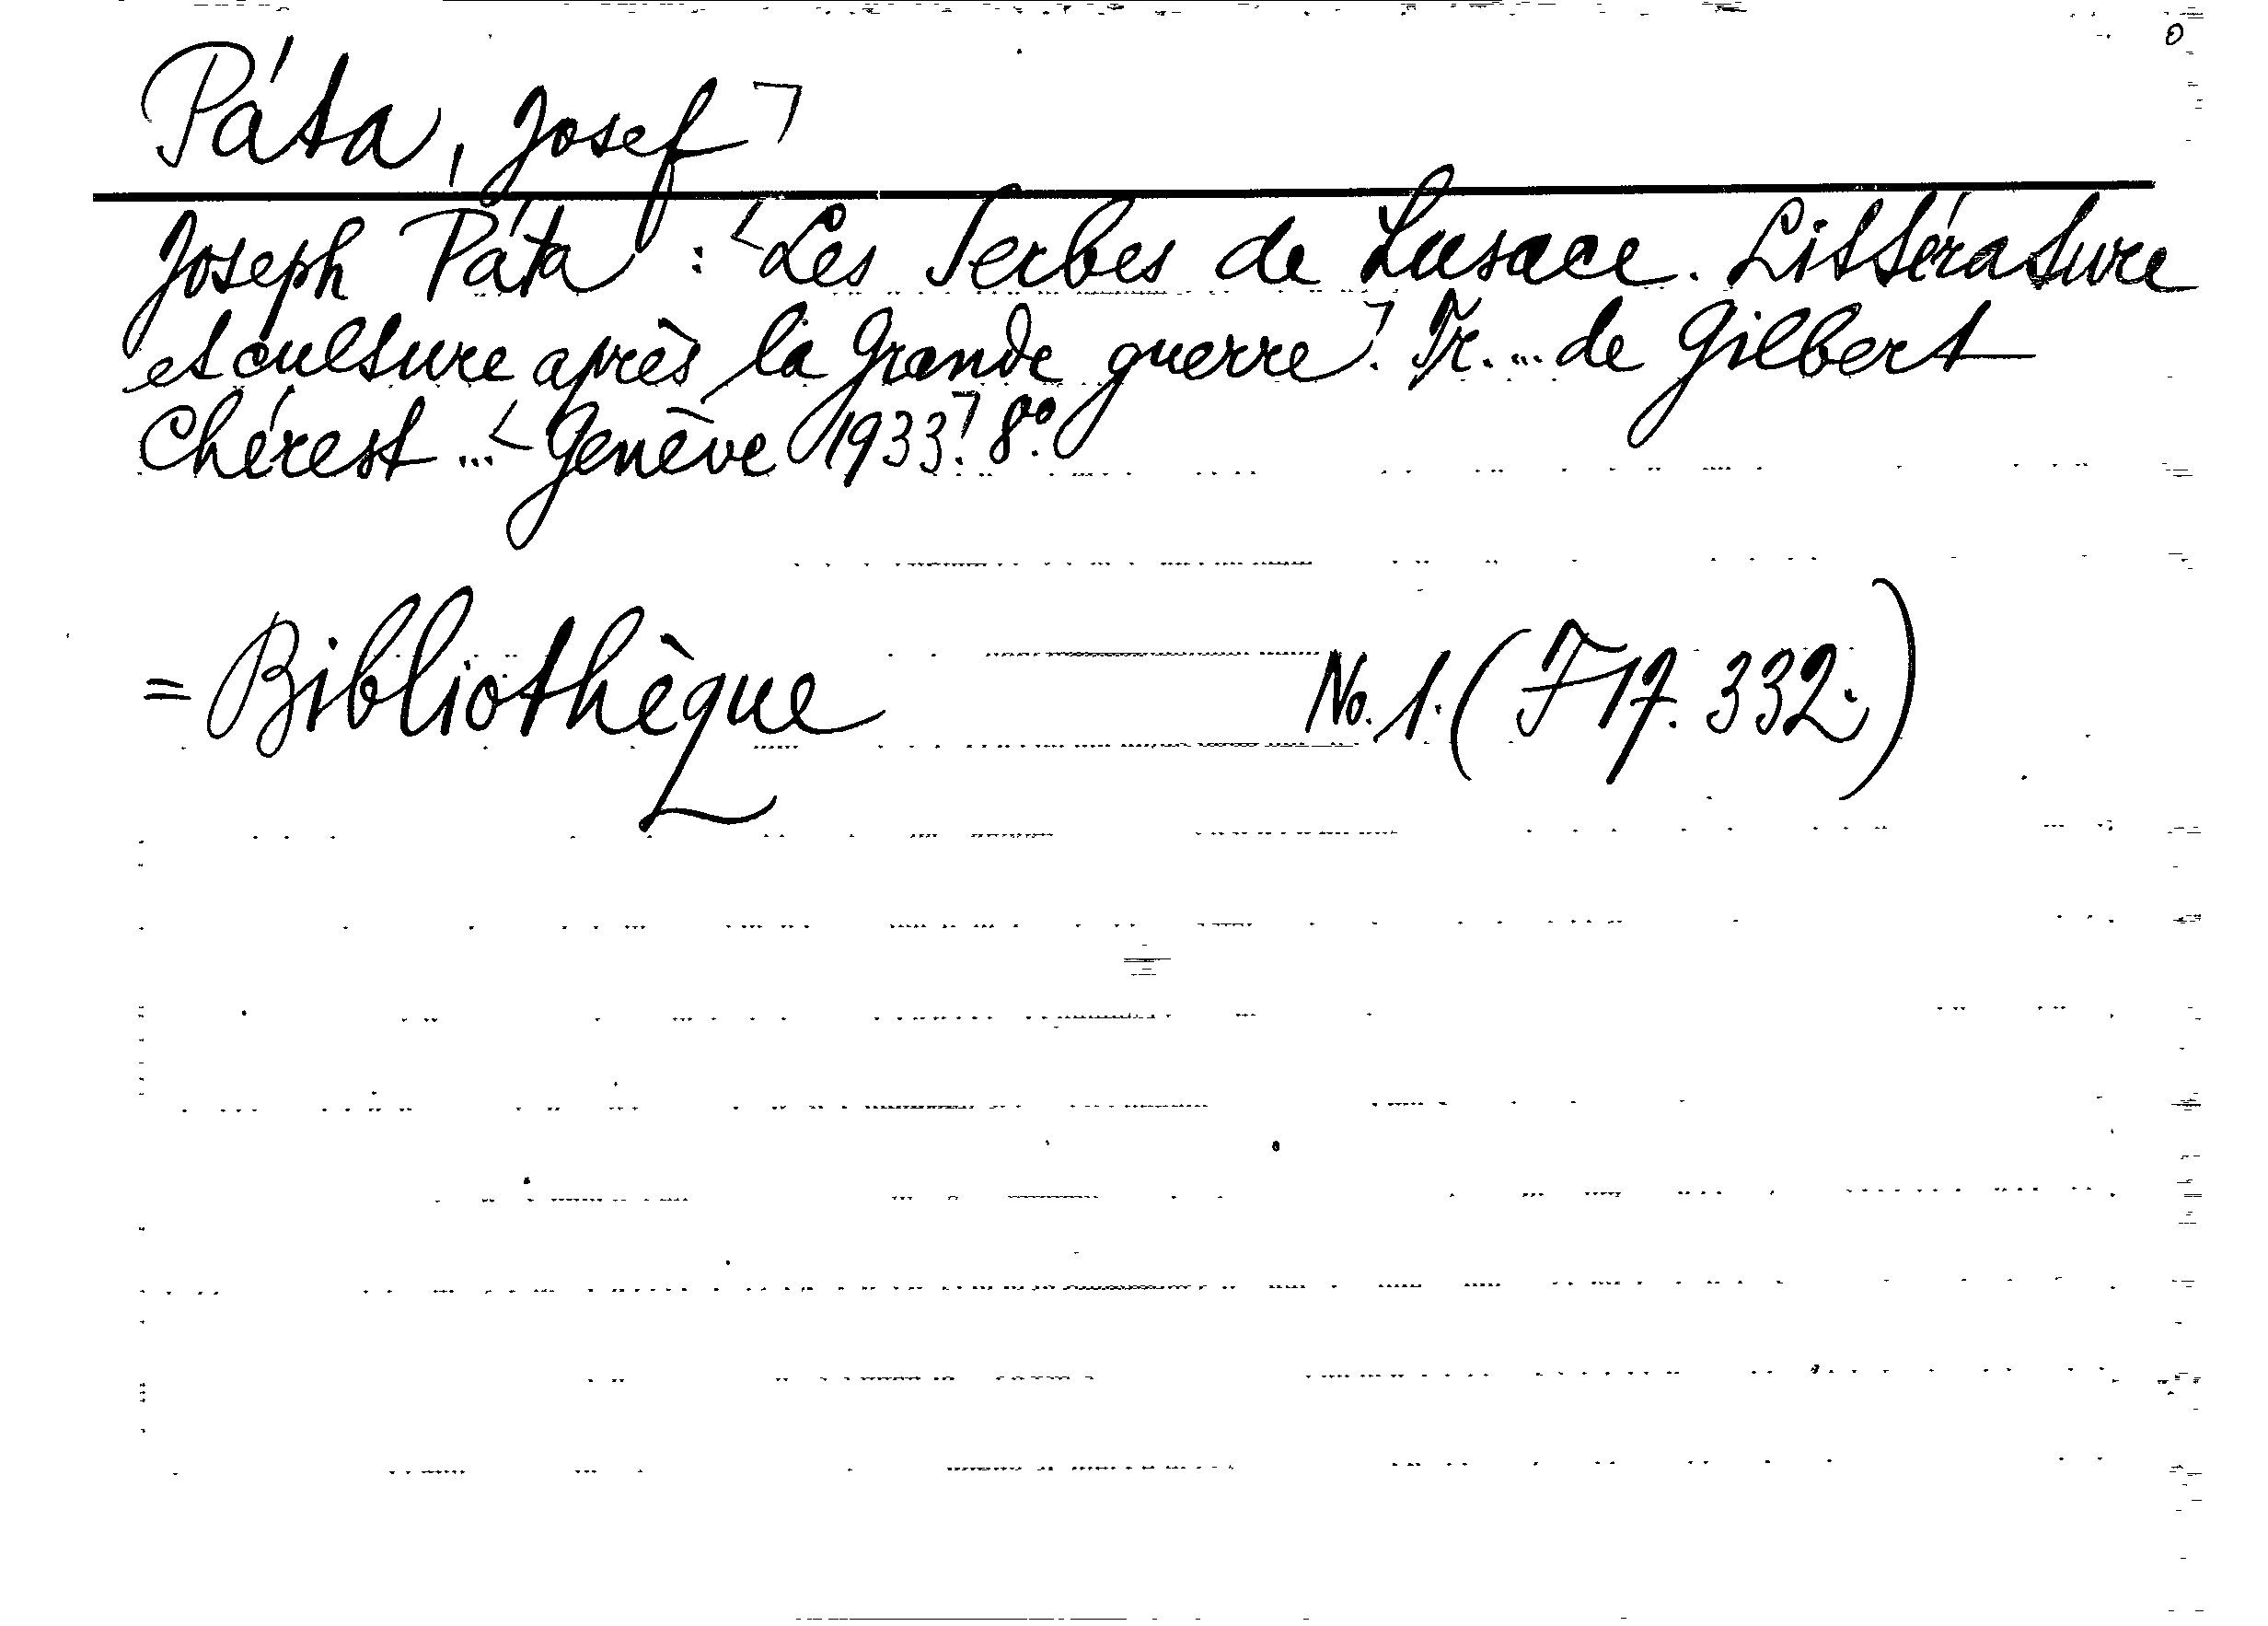 Páta, Josef
Joseph Páta : Les Serbes de Lusace. Littérature
et culture après la Grande guerre. Tr. ... de Gilbert
Chérest ... Genève 1933. 8°.
= Bibliothèque No. 1. (F 17. 332.)